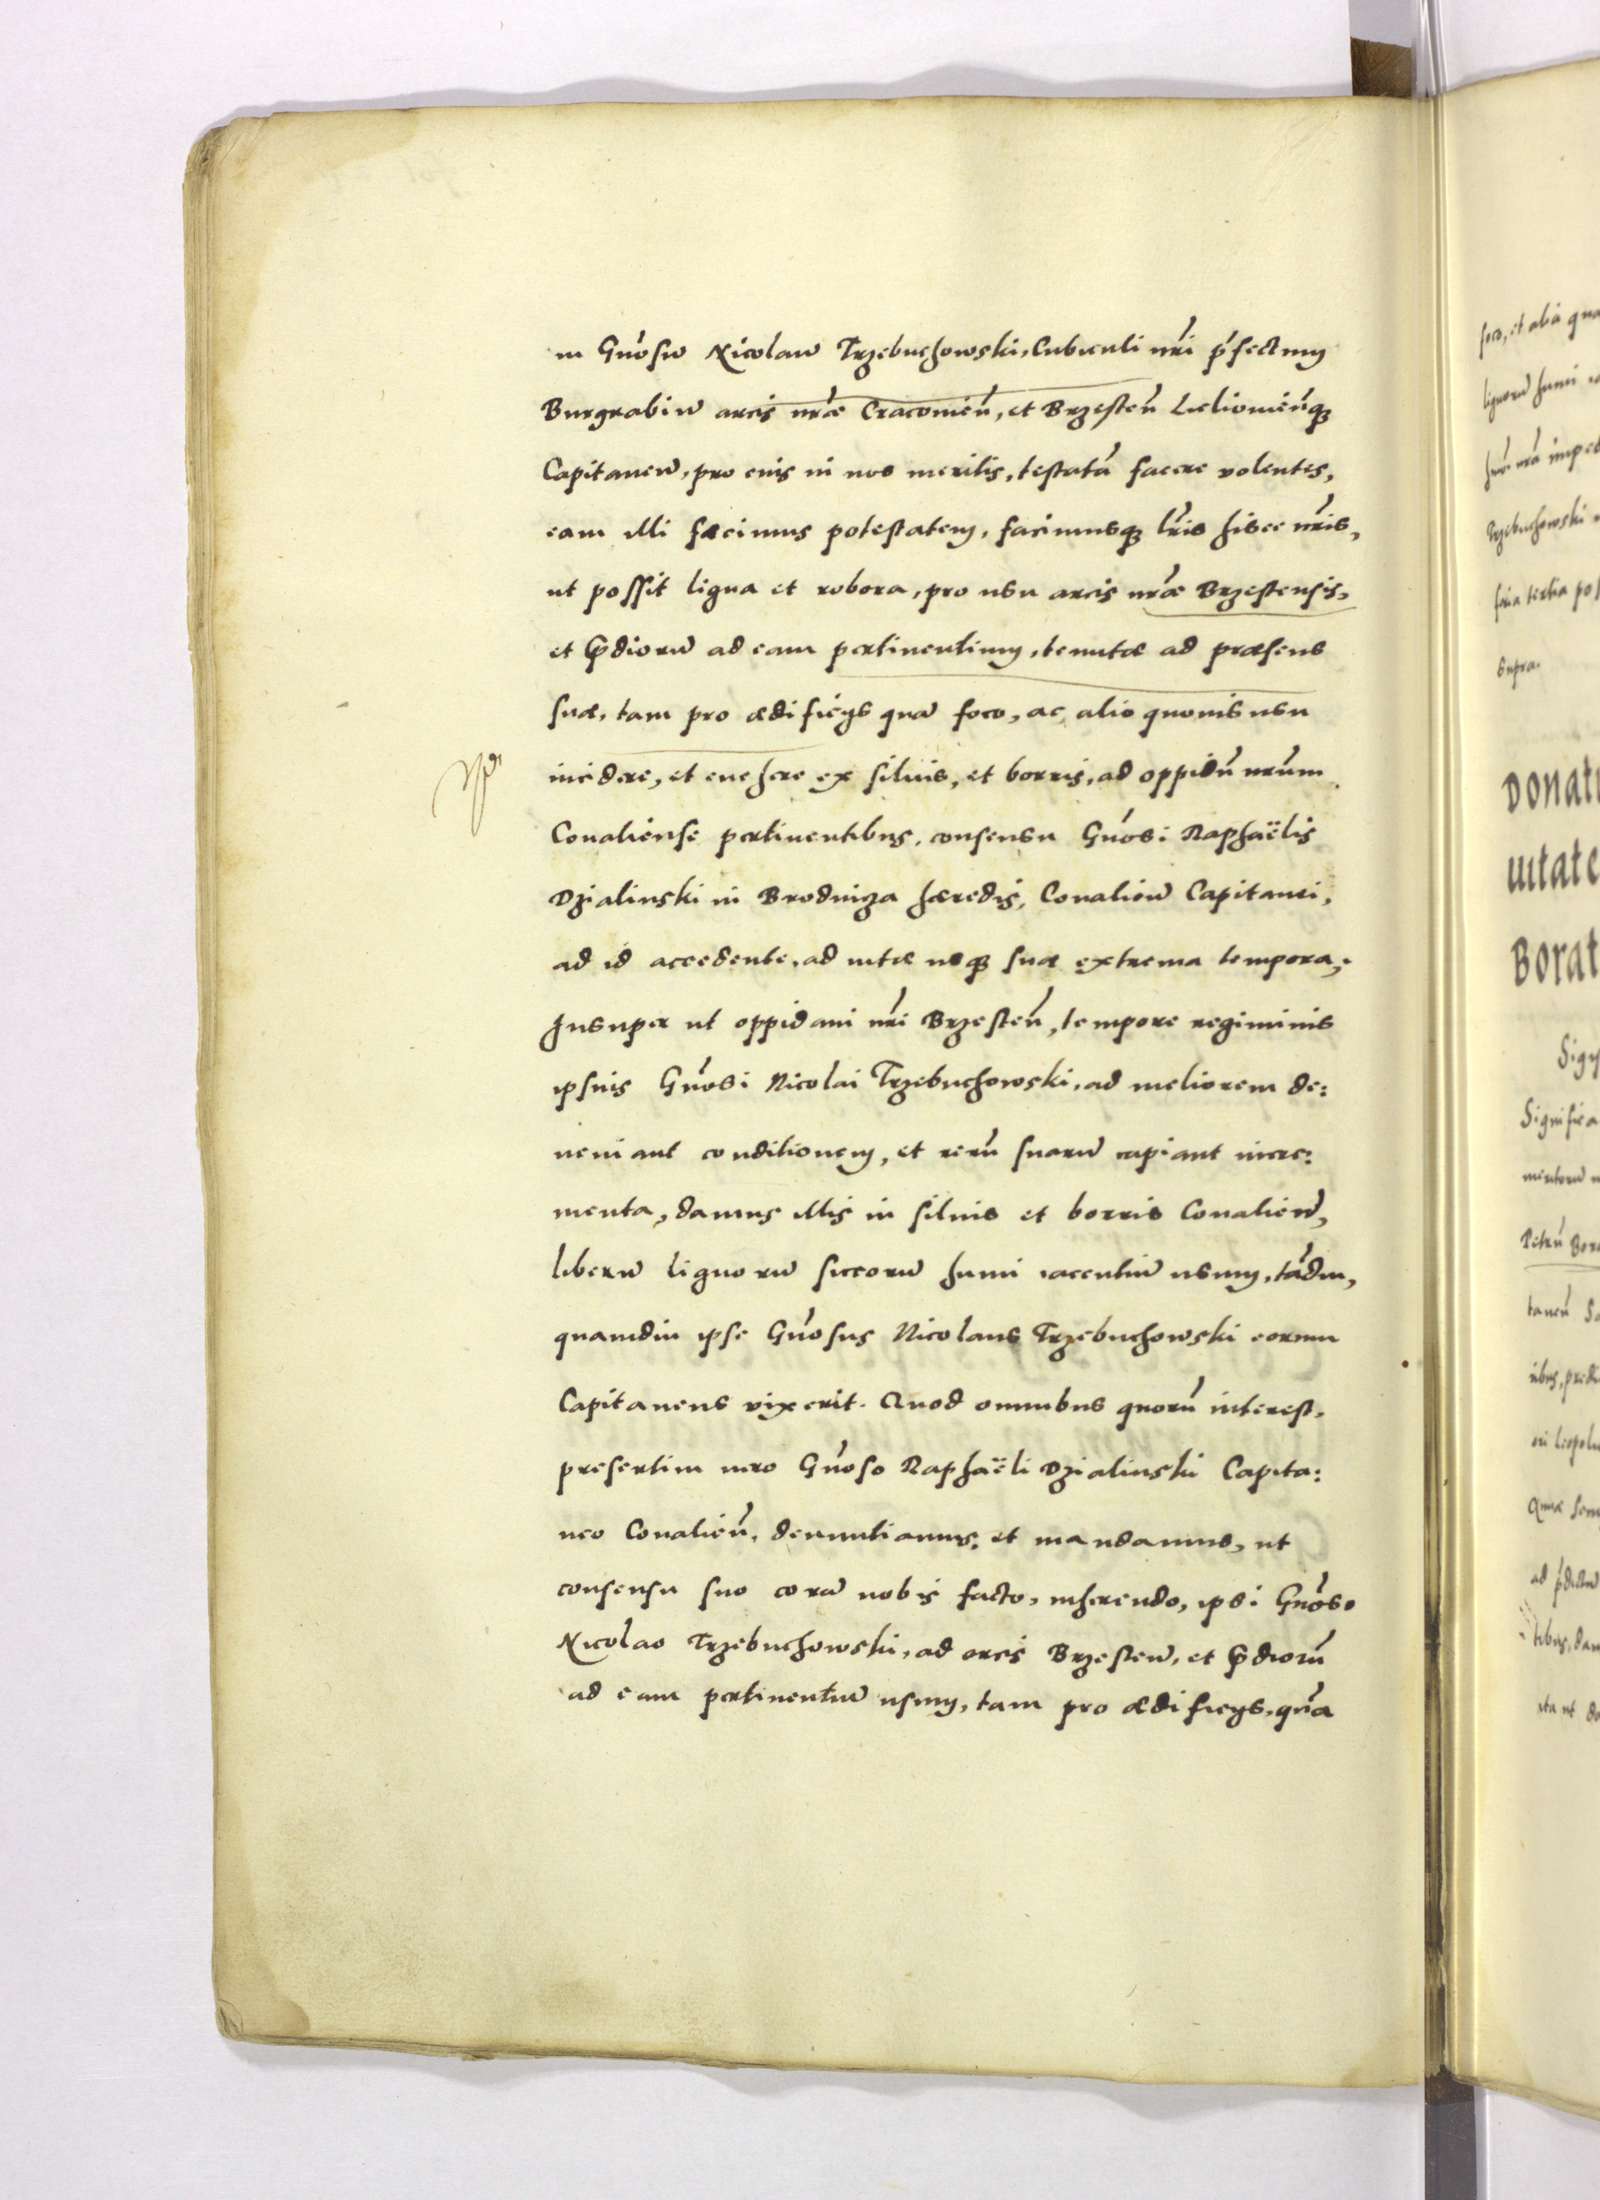 in Gn̄osū Nicolaū Trzebuchowski, Cubiculi nr̄i p̄fectum
Burgrabiū arcis nr̄æ Cracovien̄, et Brzesten̄ Lelovien̄q̨
Capitaneū, pro eius in nos meritis, testatā facere volentes,
eam illi facimus potestatem, facimusq̨ lr̄is hisce nr̄is,
ut possit ligna et robora, pro usu arcis nr̄æ Brzestensis,
et p̄diorū ad eam pertinentium, tenutæ ad præsens
suæ, tam pro ædificijs quā foco, ac alio quovis usu
incidere, et evehere ex silvis, et borris, ad oppidū nr̄um
Covaliense pertinentibus, consensu Gn̄osi Raphaëlis
Dzialinski in Brodnicza hæredis, Covalien̄ Capitanei,
ad id accedente, ad vitæ usq̨ suæ extrema tempora,.
Insuper ut oppidani nr̄i Brzesten̄, tempore regiminis
ipsius Gn̄osi Nicolai Trzebuchowski, ad meliorem de:
veniant conditionem, et rerū suarū capiant incre:
menta, damus illis in silvis et borris Covalien̄,
liberū lignorū siccorū humi iacentiū usum, tādiu,
quamdiu ipse Gn̄osus Nicolaus Trzebuchowski eorum
Capitaneus vixerit. Quod omnibus quorū interest,
presertim vero Gn̄oso Raphaëli Dzialinski Capita:
neo Covalien̄, denuntiamus: et mandamus, ut
consensu suo corā nobis facto, inherendo, ipsi Gn̄oso
Nicolao Trzebuchowski, ad arcis Brzesten̄, et p̄diorū
ad eam pertinentiū usum, tam pro ædificijs, quā
foco, et alia
lignorū humi
Trzebuchowski
feria tertia
supra.
Donati
uitate
Borat
Significa
Petrū Bor